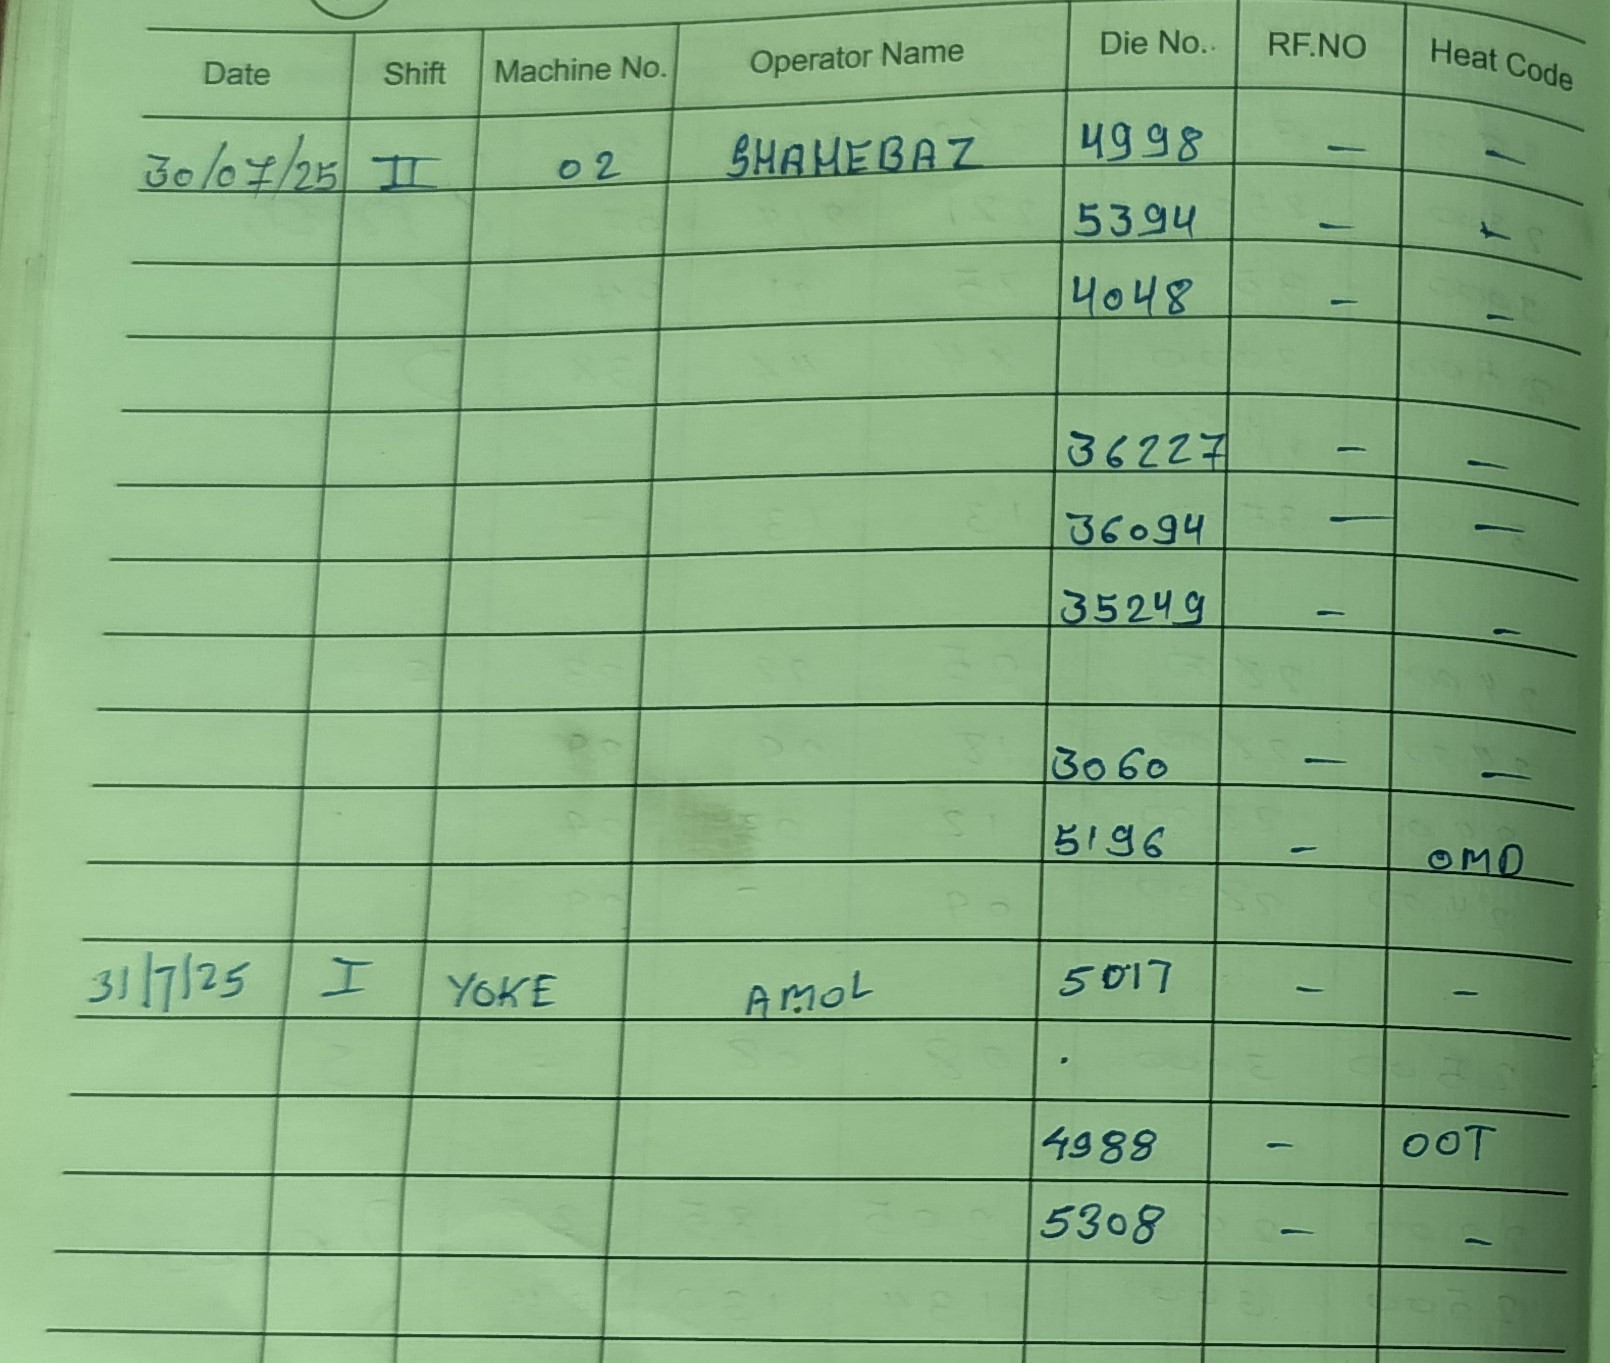 Date Shift Machine No. Operator Name Die No.. RF.NO Heat Code
30/07/25 II 02 SHAHEBAZ 4998 - -
5394 - -
4048 - -
36227 - -
36094 - -
35249 - -
3060 - -
5196 - OMD
31/7/25 I YOKE AMOL 5017 - -
.
4988 - OOT
5308 - -